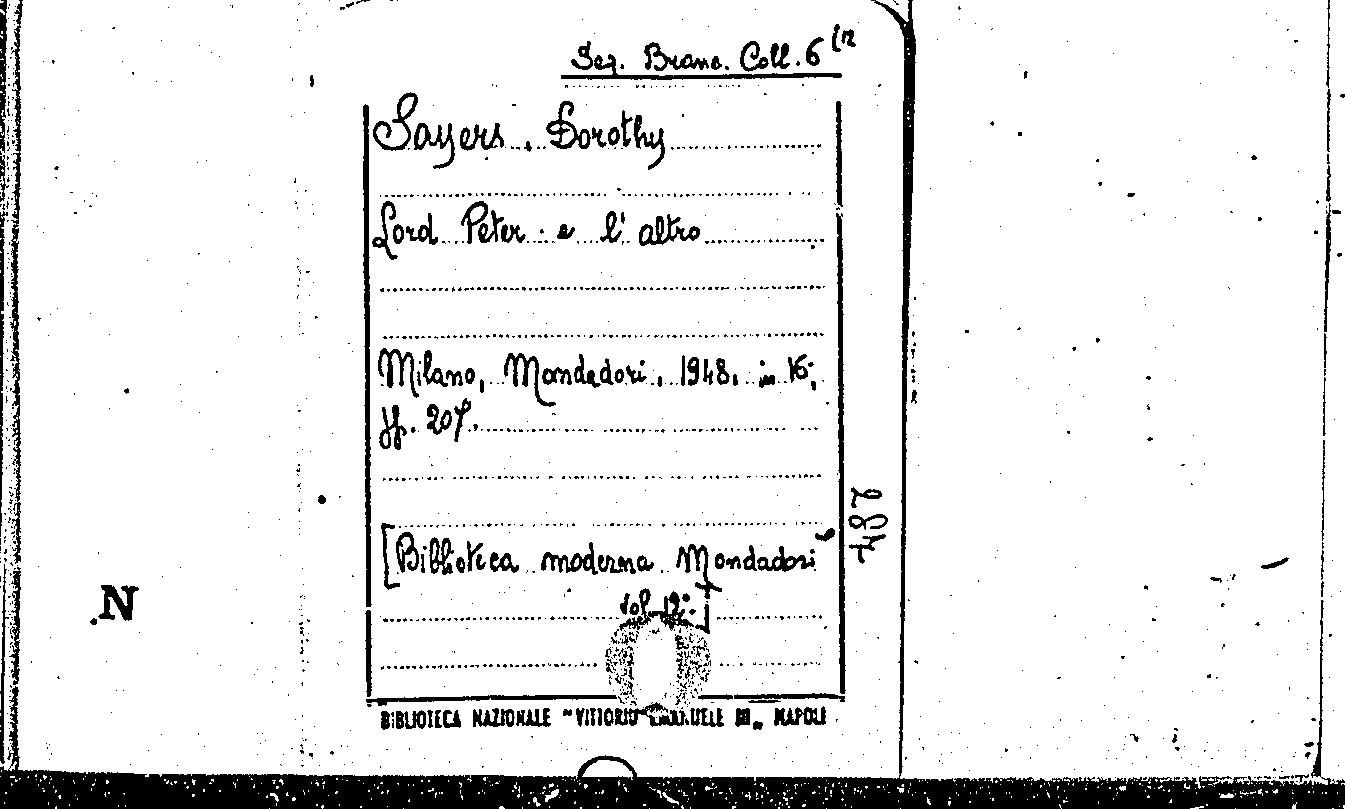 Sez. Branc. Coll. 6 (12
Sayers, Dorothy
Lord Peter e l'altro
Milano, Mondadori, 1948, in 16°,
pp. 207.
[Biblioteca moderna Mondadori
vol. 12°]
487
N
BIBLIOTECA NAZIONALE "VITTORIO EMANUELE III„ NAPOLI